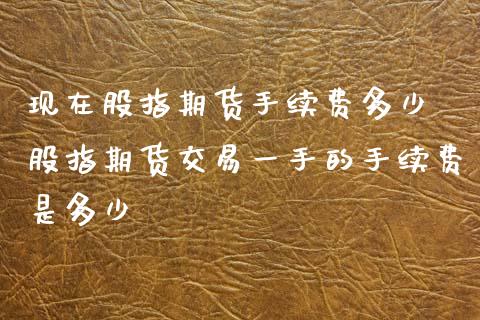 现在股指期货手续费多少
股指期货交易一手的手续费
是多少